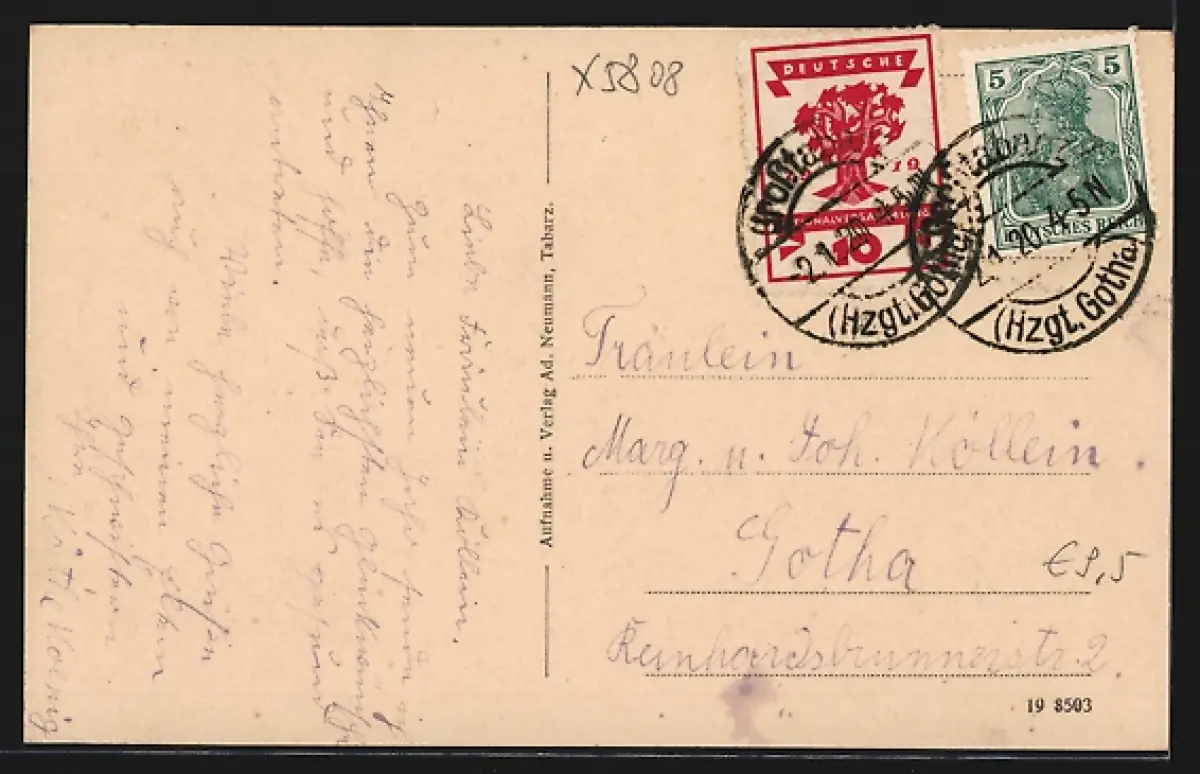 X5808
DEUTSCHE
1919
NATIONALVERSAMMLUNG
10
5 5
DEUTSCHES REICH
Großtabarz
2.1.20. 4-5N
(Hzgt. Gotha)
Großtabarz
2.1.20. 4-5N
(Hzgt. Gotha)
Liebe Fräulein Köllein,
Zum neuen Jahr sende ich
Ihnen die herzlichsten Glückwünsche
und hoffe, daß Sie es gesund
antraten.
Viele herzliche Grüße
auch von meinen Eltern
und Geschwistern
Ihre
Käthe Koenig
Aufnahme u. Verlag Ad. Neumann, Tabarz.
Fräulein
Marg. u. Joh. Köllein.
Gotha
€9,5
Reinhardsbrunnerstr. 2
19 8503